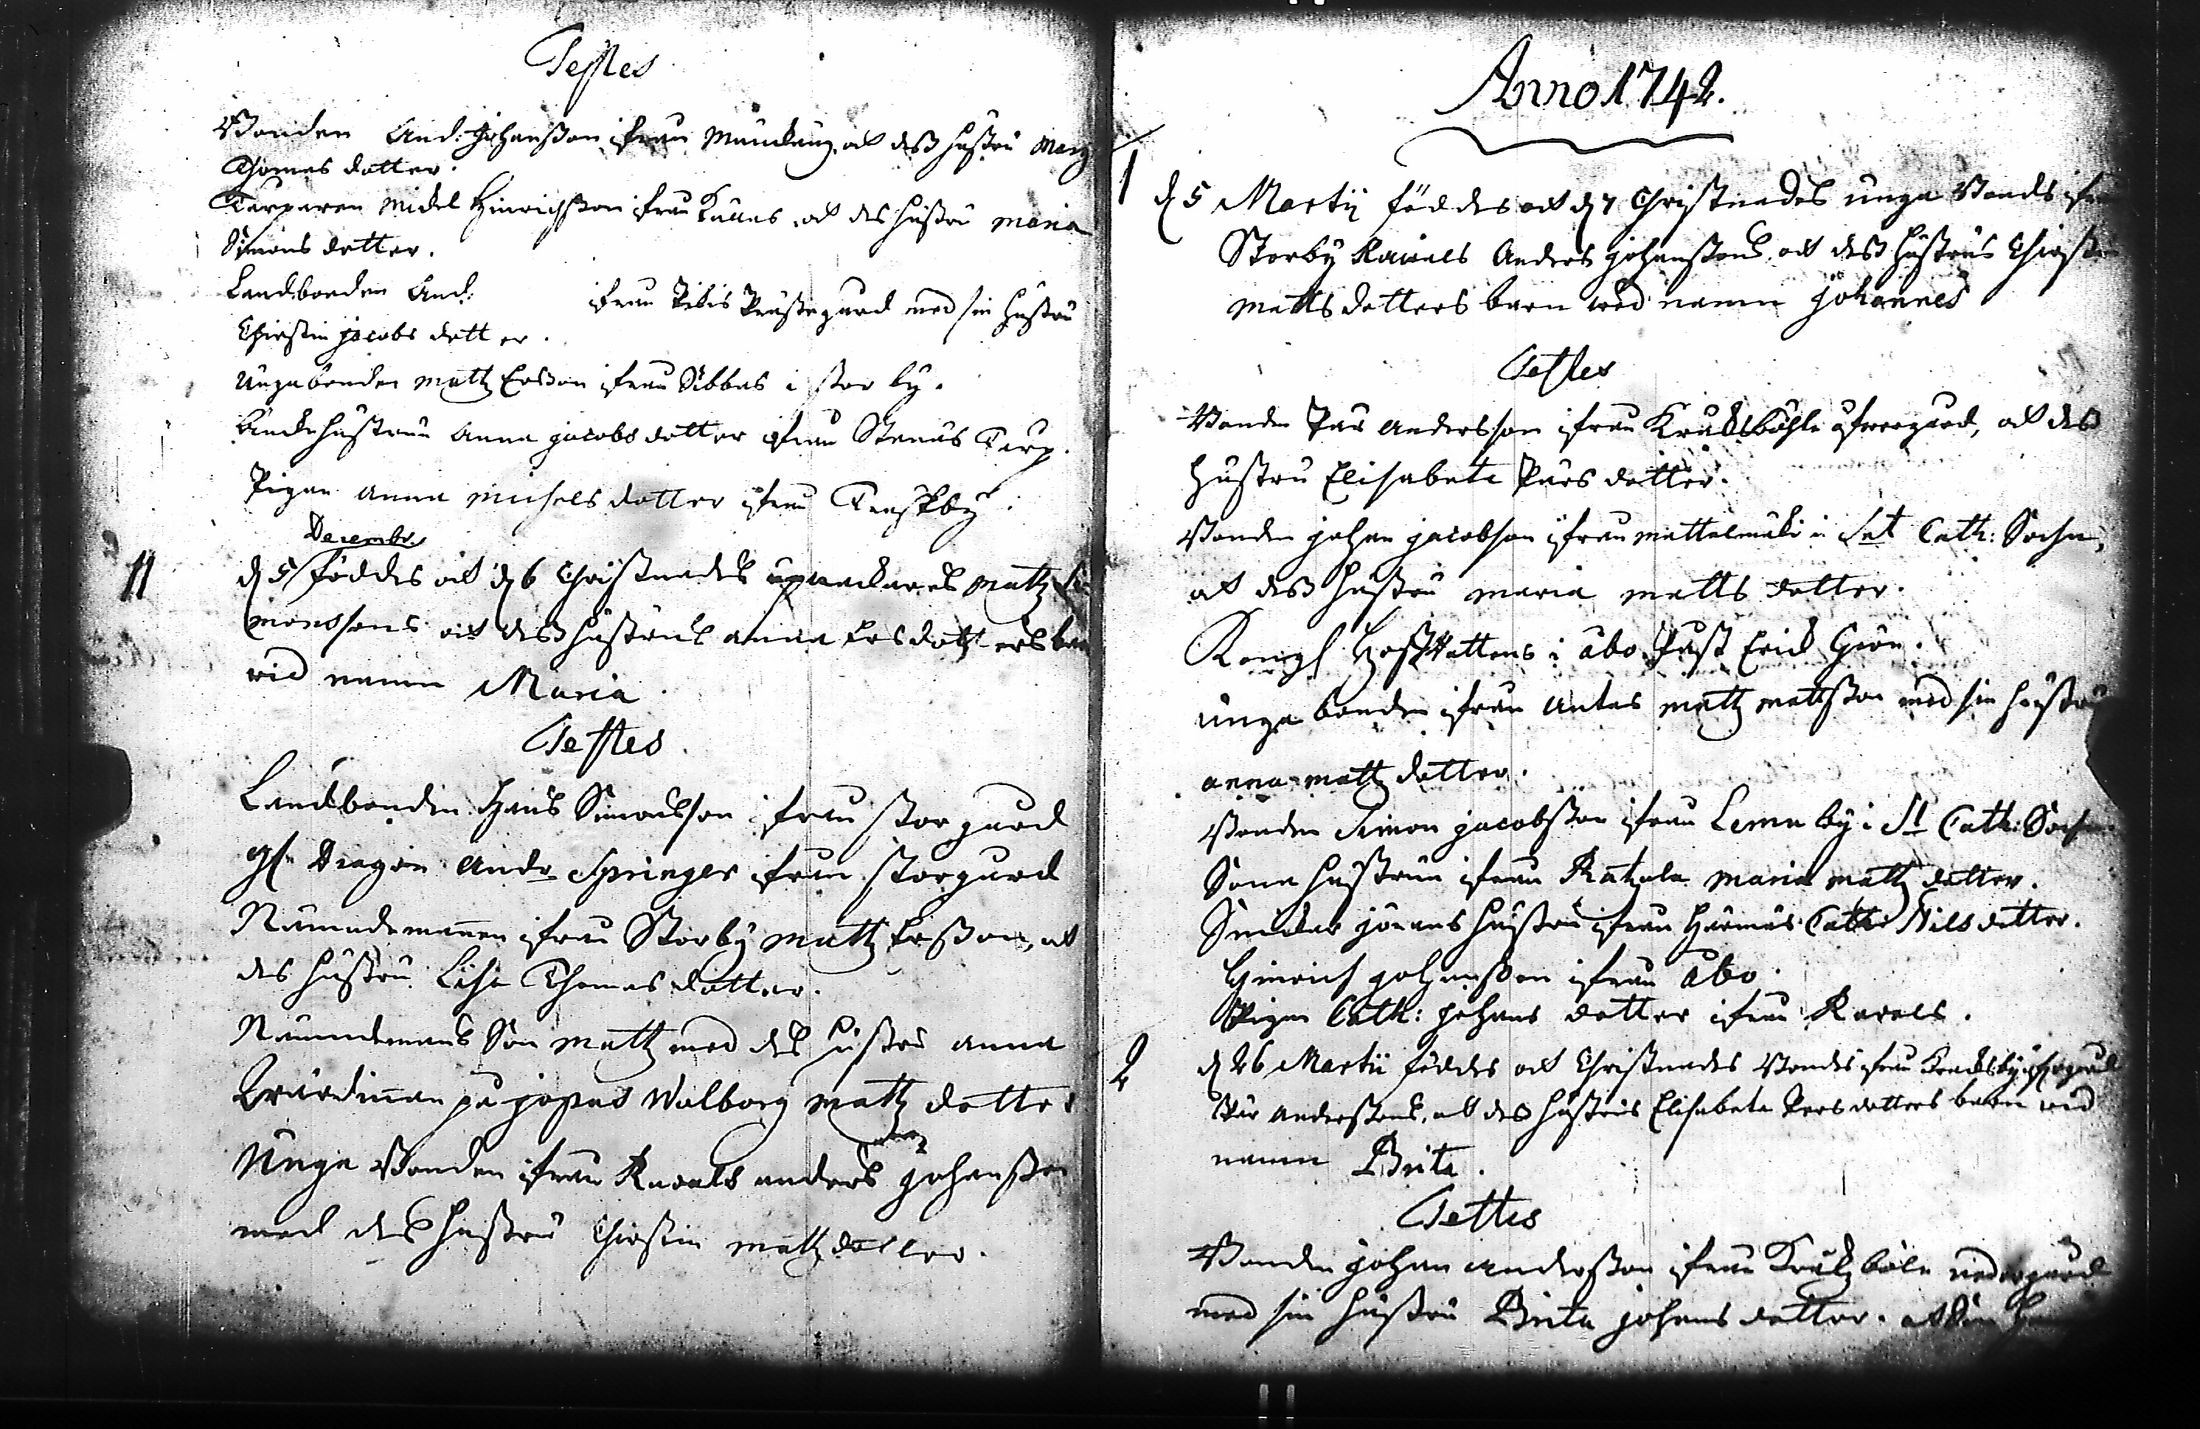 Testes
Bonden And: Johansson ifrån Munckäng, ock dess hustru Marg
Thomas dotter.
Torparen Mickel Hinrichsson ifrån och des hustru Maria
Simons dotter.
Landbonden And: ifrån Pikis Prästegård med sin hustru
Chirstin Jacobs dotter.
Unga bonden Matz Ersson ifrån Sibbas i Storby.
Änckehustrun Anna Jacobs dotter ifrån Stenäs Torp.
Pigan Anna Michels dotter ifrån
Decembr.
11 d 5 föddes och d 6 Christnades Matz Si
monssons och dess hustrus Anna Ers dotters barn
vid namn Maria.
Testes
Landbonden Hans Simonsson ifrån Storgård
Dragon Andr Springer ifrån Storgård
Nämndemannen ifrån Storby Matz Ersson, ock
des hustru Lisa Thomas dotter.
Nämndemans Son Matz med des hustru Anna
på Jopas Walborg Matz dotter
Unga Bonden ifrån Ravals Anders Johansson
med des hustru Chirstin Matz dotter.
Anno 1742.
1 d 5 Martij föddes och d 7 Christnades unga Bonds ifrån
Storby Ravals Anders Johanssons, och dess hustrus Chirstin
Matts dotters barn vid namn Johannes
Testes
Bonden Pär Andersson ifrån Kraksböhle öfvergård, och dess
hustru Elisabeta Pärs dotter.
Bonden Johan Jacobson ifrån Mattelmäki i Sct Cath: Sochn,
och dess hustru Maria Matts dotter.
Kongl Hofrättens i Åbo Erick Grön.
Unga bonden ifrån Antas Matz Mattsson med sin hustru
Anna Matz dotter.
Bonden Simon Jacobsson ifrån Lemu by i St Cath: Sochn
Sona hustrun ifrån Maria Matz dotter.
Jörans hustru ifrån Cath: Nils dotter.
Hinrich Johansson ifrån Åbo.
Pigan Cath: Johans dotter ifrån Ravals.
2 d 26 Martii föddes och Christnades Bondes ifrån öfvergård
Pär Anderssons, och des hustrus Elisabeta Pers dotters barn vid
namn Brita.
Testes
Bonden Johan Andersson ifrån Krakzböle nedergård
med sin hustru Brita Johans dotter.